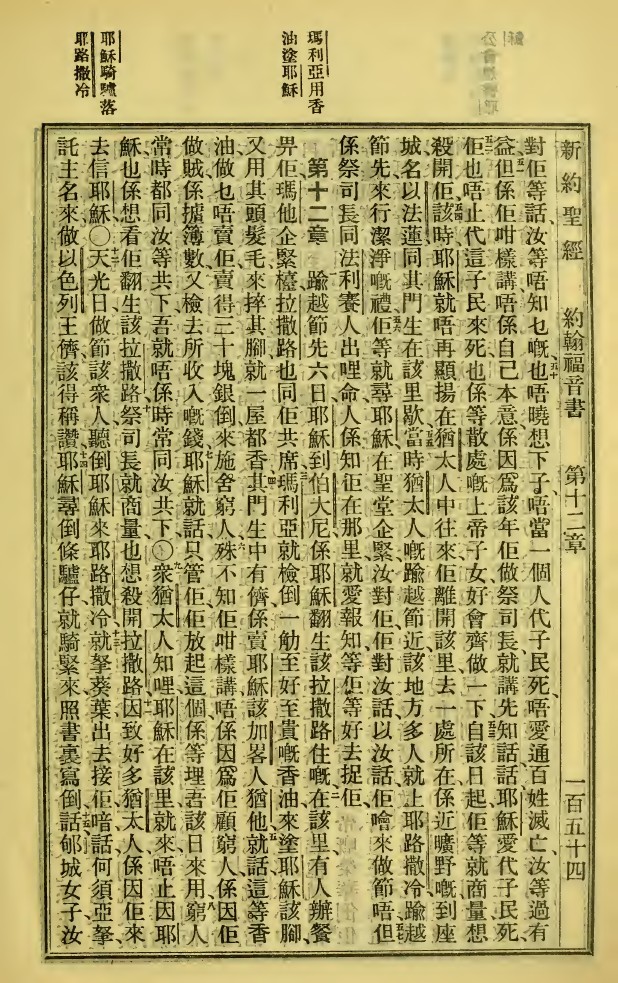 新約聖經 約翰福音書 第十二章 一百五十四
瑪利亞用香
油塗耶穌
耶穌騎驢落
耶路撒冷
對佢等話汝等唔知乜嘅也唔曉想下子唔當一個人代子民死唔愛通百姓滅亡汝等過有
益但係佢咁樣講唔係自己本意係因爲該年佢做祭司長就講先知話話耶穌愛代子民死
佢也唔止代這子民來死也係等散處嘅上帝子女好會齊做一下自該日起佢等就商量想
殺開佢該時耶穌就唔再顯揚在猶太人中往來佢離開該里去一處所在係近曠野嘅到座
城名以法蓮同其門生在該里歇當時猶太人嘅踰越節近該地方多人就上耶路撒冷踰越
節先來行潔淨嘅禮佢等就尋耶穌在聖堂企緊汝對佢佢對汝話以汝話佢噲來做節唔但
係祭司長同法利賽人出哩命人係知佢在那里就愛報知等佢等好去捉佢
第十二章 踰越節先六日耶穌到伯大尼係耶穌翻生該拉撒路住嘅在該里有人辦餐
畀佢瑪他企緊檯拉撒路也同佢共席瑪利亞就檢倒一觔至好至貴嘅香油來塗耶穌該腳
又用其頭髮毛來捽其腳就一屋都香其門生中有儕係賣耶穌該加畧人猶他就話這等香
油做乜唔賣佢賣得三十塊銀倒來施舍窮人殊不知佢咁樣講唔係因爲佢顧窮人係因佢
做賊係擄簿數又檢去所收入嘅錢耶穌就話只管佢佢放起這個係等埋吾該日來用窮人
常時都同汝等共下吾就唔係時常同汝共下〇衆猶太人知哩耶穌在該里就來唔止因耶
穌也係想看佢翻生該拉撒路祭司長就商量也想殺開拉撒路因致好多猶太人係因佢來
去信耶穌〇天光日做節該衆人聽倒耶穌來耶路撒冷就拏葵葉出去接佢喑話何須亞拏
託主名來做以色列王儕該得稱讚耶穌尋倒條驢仔就騎緊來照書裏寫倒話郇城女子汝